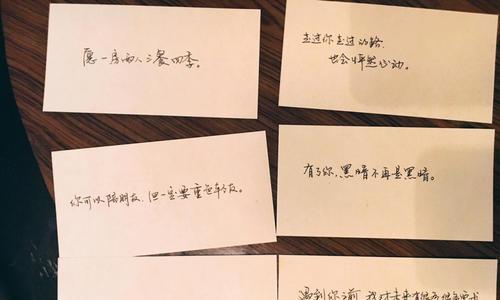 愿一房两人三餐四季。
走过你走过的路,
也会怦然心动。
你可以陪朋友,但一定要重色轻友。
有了你,黑暗不再是黑暗。
遇到你之前,我对未来